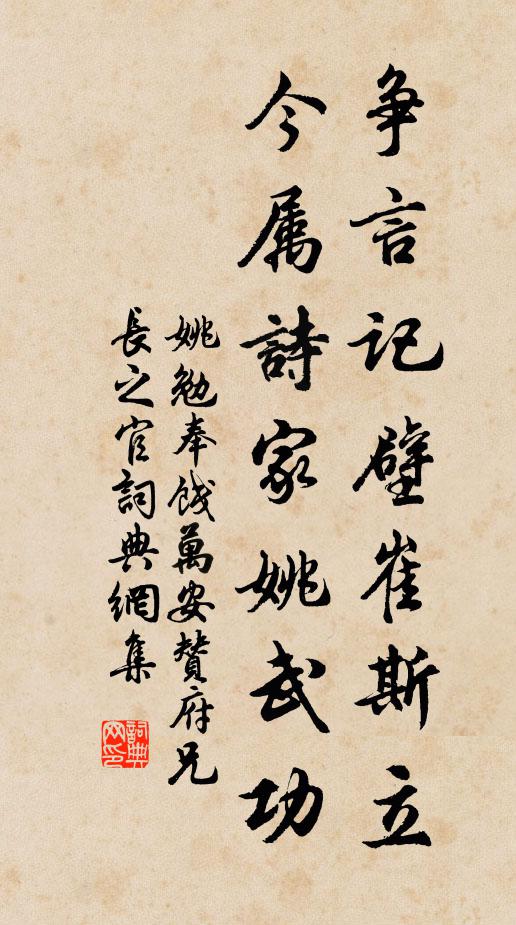 争言记壁崔斯立
今属詩家姚武功
姚勉奉餞萬安贊府兄
長之官詞典網集
詞典网印